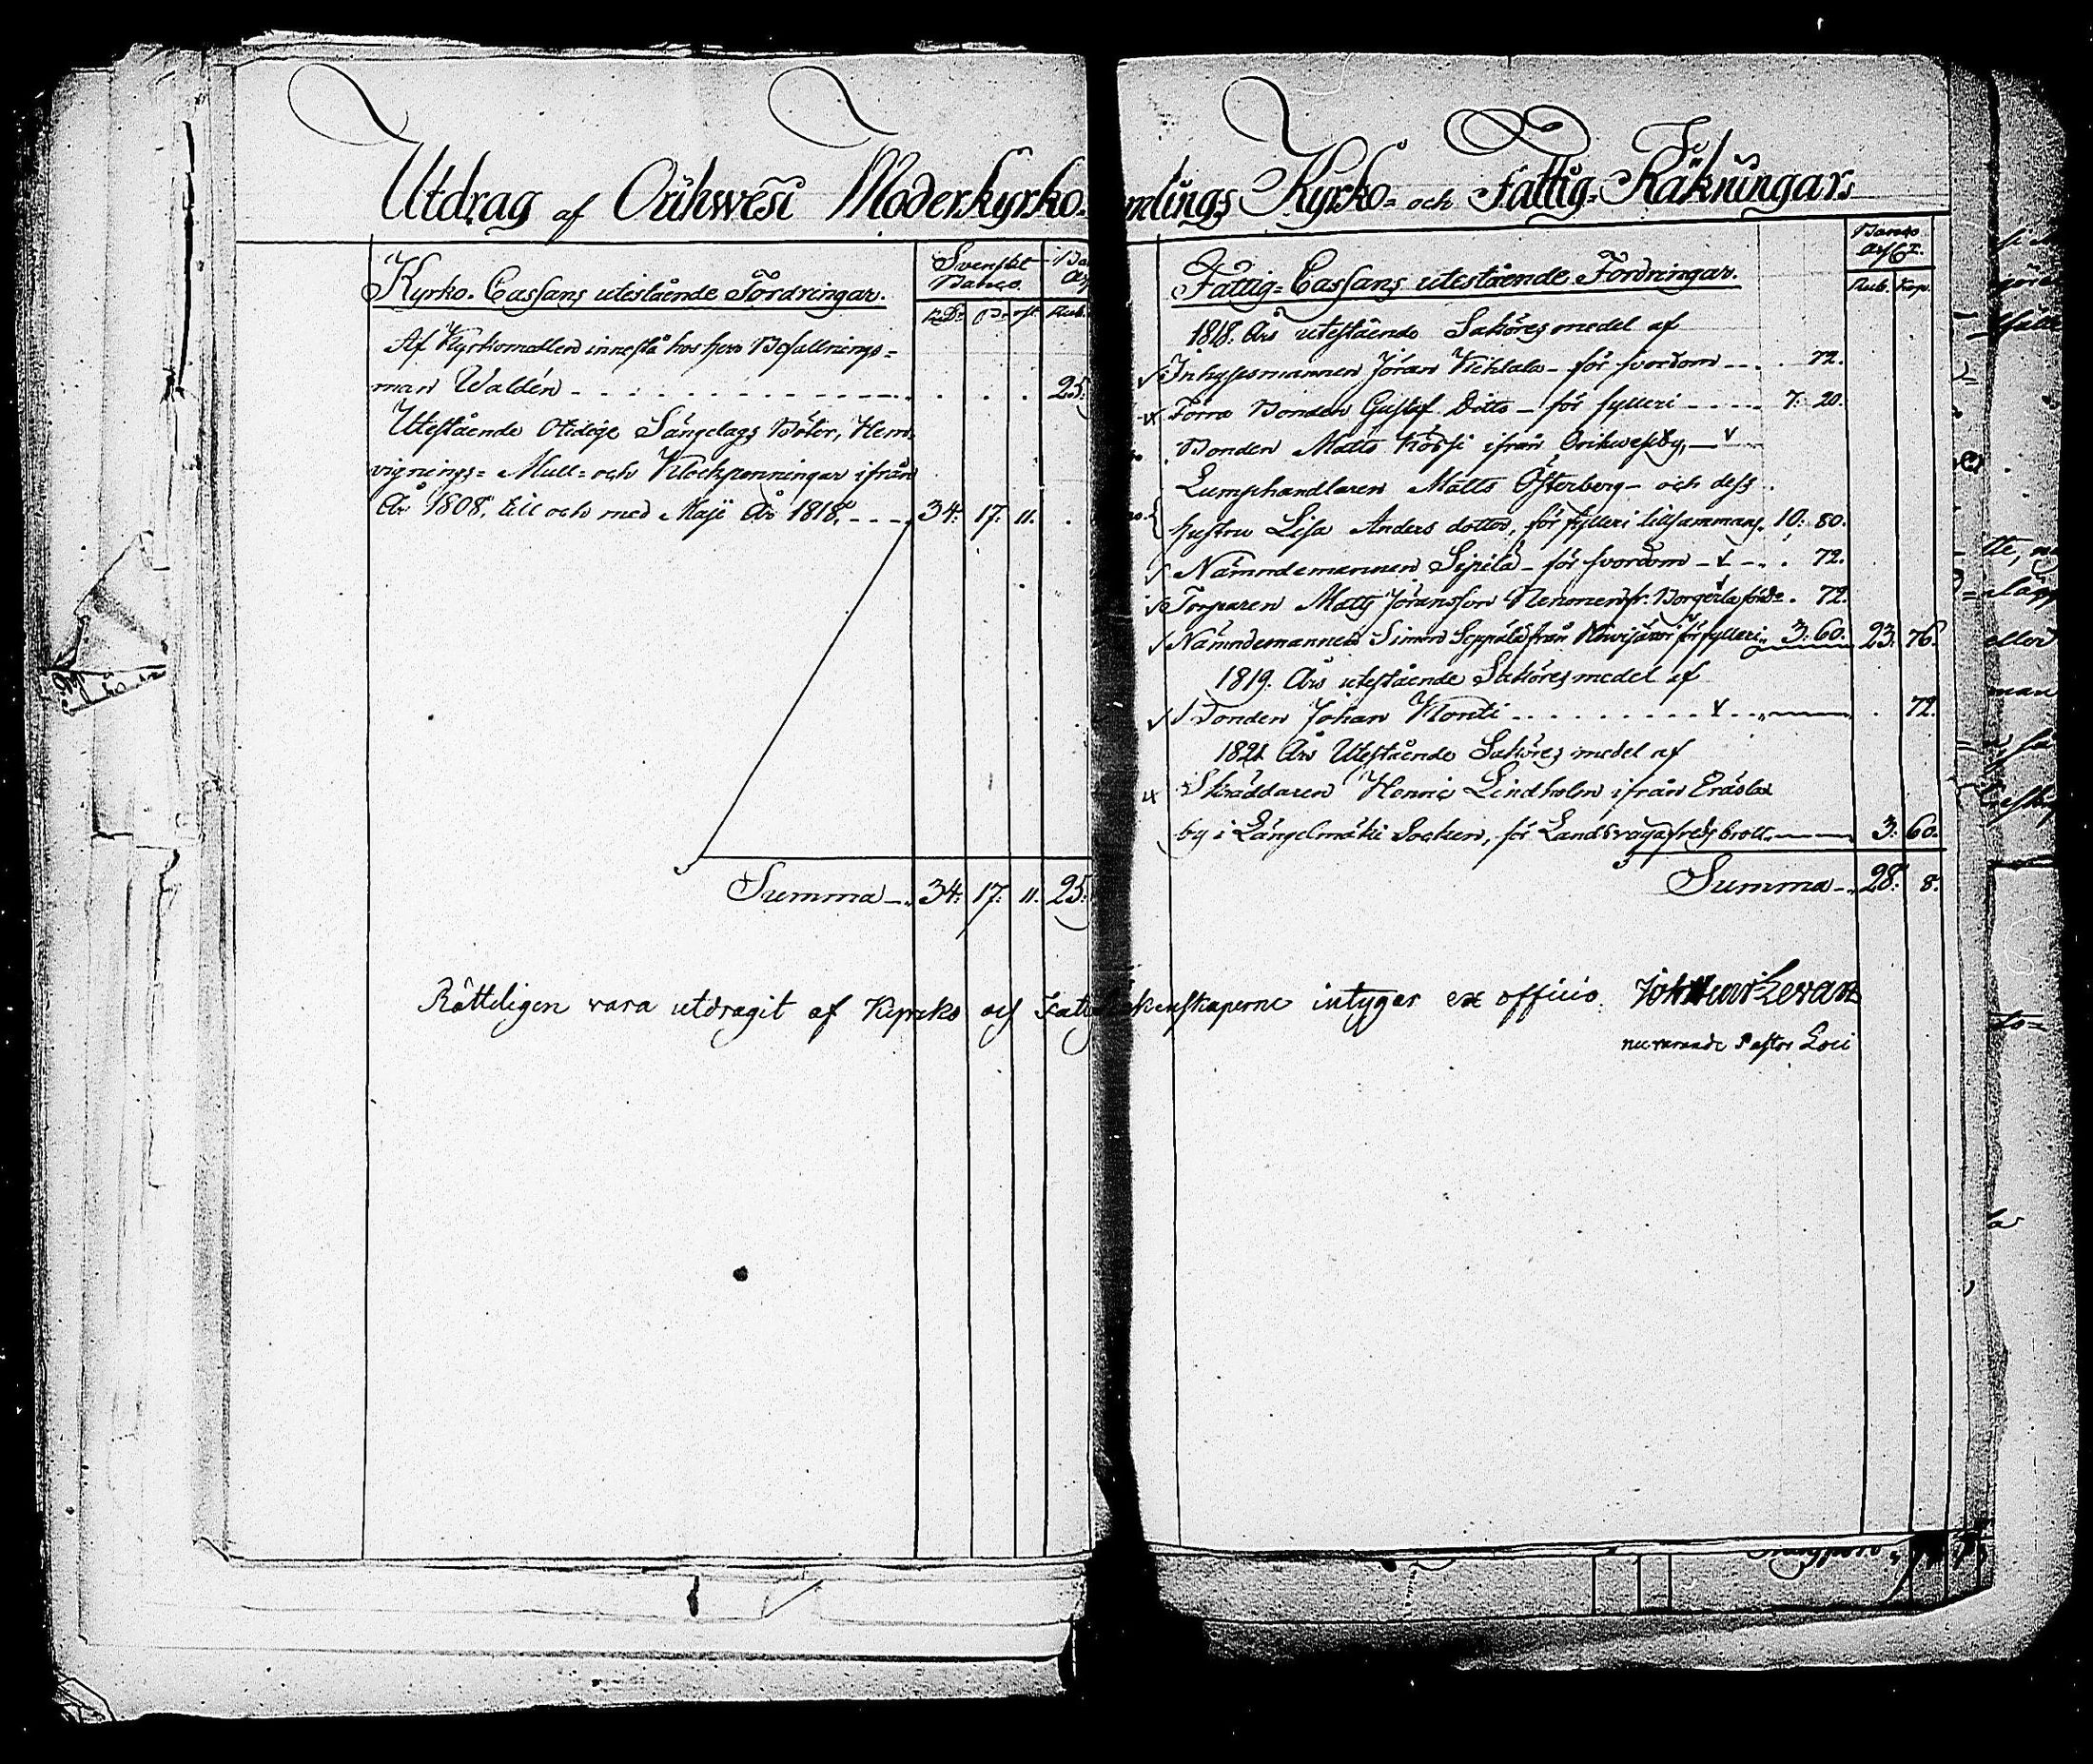 Utdrag af Orihwesi Moderkyrko-
mlings Kyrko- och Fattig-Räkningar.
Kyrko-Cassans utestående Fordringar.
Svenskt
Banco
RDr
Rub.
Af Kyrkomedlen innestå hos herr Befallnings=
man Waldén 25.
Utestående Otidige Sängelags Böter, Hem
vignings= Mull= och Klockpenningar ifrån
År 1808. till och med Maji År 1818. 34: 17: 11.
Summa 34: 17: 11. 25.
Fattig-Cassans utestående Fordringar.
Banco
Rub. Kop.
1818. Års utestående Saköresmedel af
Inhysesmannen Jöran för svordom 72.
Förra Bonden Gustaf Ditto för fylleri 7: 20.
Bonden Matts ifrån Orihwesiby,
Lumphandlaren Matts Österberg och dess
hustru Lisa Anders dotter, för fylleri tillsammans 10: 80.
Nämndemannen Sipilä för svordom 72.
Torparen Matts Jöransson 72.
Nämndemannen Simon Seppälä från för fylleri 3: 60. 23: 76.
1819. Års utestående Saköresmedel af
Bonden Johan Kontti 72.
1821 Års Utestående Saköres medel af
Skräddaren Henric Lindholm ifrån Eräslax
by i Längelmäki Socken, för Landsvägafredsbrott 3: 60.
Summa 28: 8.
Rätteligen vara utdragit af Kyrko och Fattig Räkenskaperne intygar ex officio.
nuvarande Pastor Loci